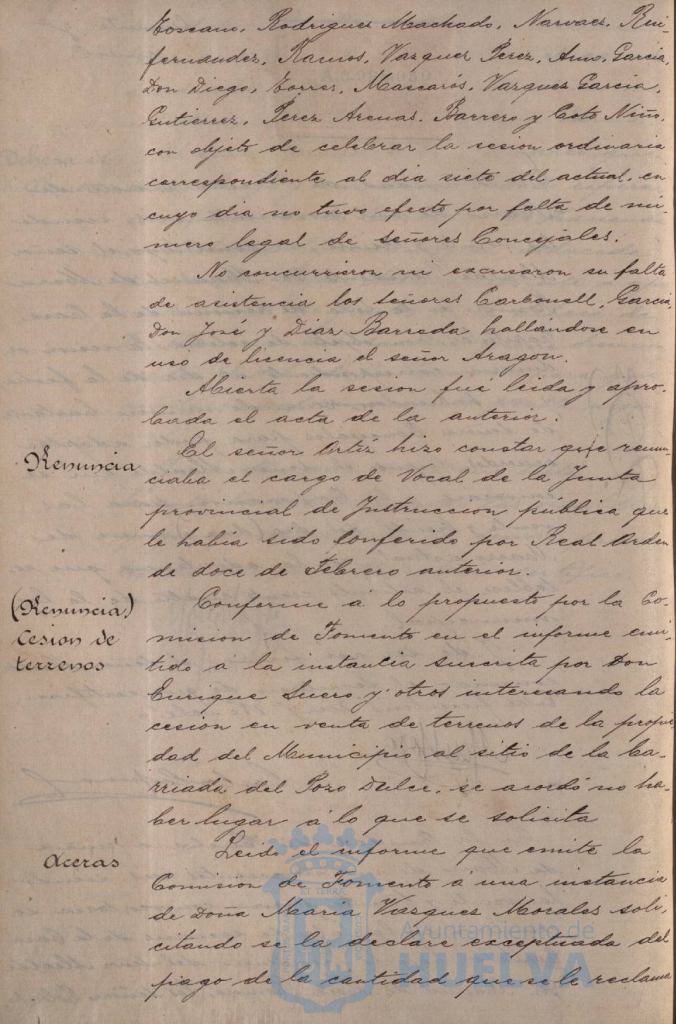 Toscano, Rodriguez Machado, Narvaez, Rui-
fernandez, Ramos, Vazquez Perez, Amo, Garcia,
Don Diego, Torres, Mascarós, Vazquez Garcia,
Gutierrez, Perez Arenas, Barrero y Coto Niño,
con objeto de celebrar la sesion ordinaria
correspondiente al dia siete del actual, en
cuyo dia no tuvo efecto por falta de nú-
mero legal de señores Concejales.
No concurrieron ni excusaron su falta
de asistencia los señores Carbonell, Garcia,
Don José y Diaz Barreda hallándose en
uso de licencia el señor Aragon.
Abierta la sesion fué leida y apro-
bada el acta de la anterior.
Renuncia
El señor Ortiz hizo constar que renun-
ciaba el cargo de Vocal de la Junta
provincial de Instruccion pública que
le habia sido conferido por Real Orden
de doce de Febrero anterior.
(Renuncia)
Cesion de
terrenos
Conforme á lo propuesto por la Co-
mision de Fomento en el informe emi-
tido á la instancia suscrita por Don
Enrique Suero y otros interesando la
cesion en venta de terrenos de la propie
dad del Municipio al sitio de la ba-
rriada del Pozo Dulce, se acordó no ha-
ber lugar á lo que se solicita
Aceras
Leido el informe que emite la
Comision de Fomento á una instancia
de Doña Maria Vazquez Morales soli-
citando se la declare exceptuada del
pago de la cantidad que se le reclama
Ayuntamiento de
HUELVA